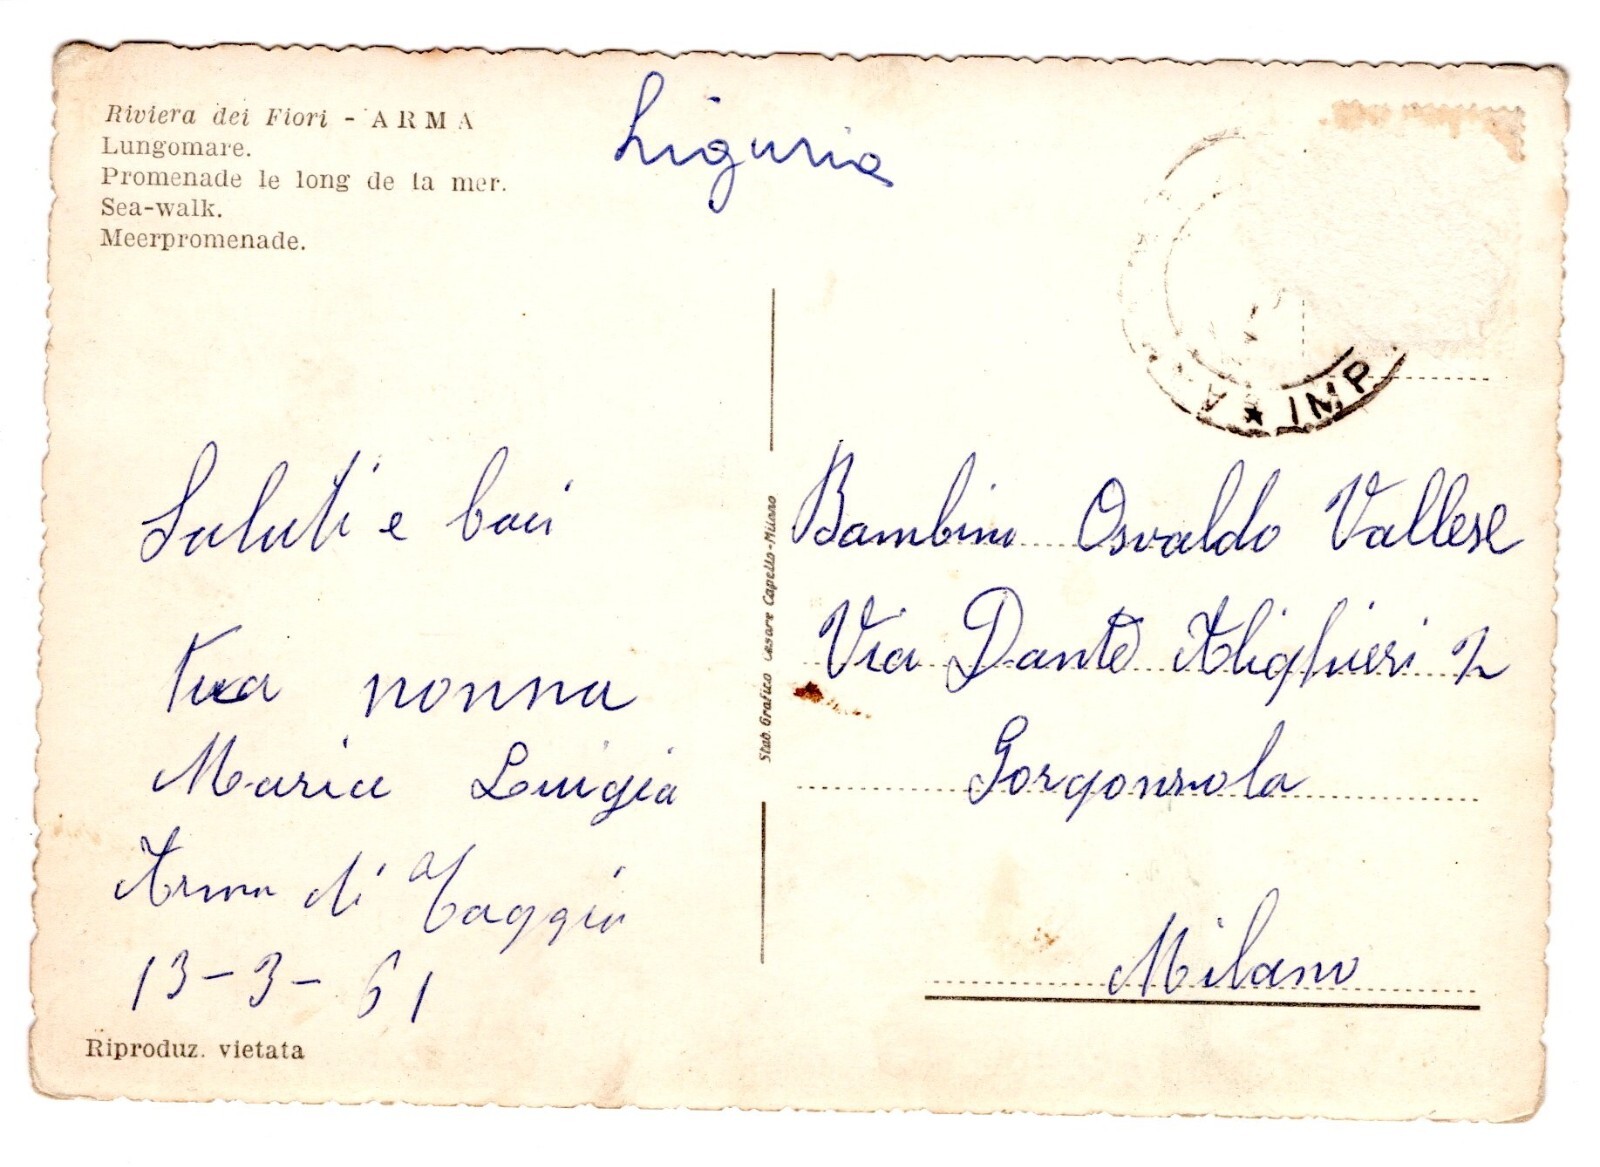 Riviera dei Fiori - ARMA
Lungomare.
Promenade le long de la mer.
Sea-walk.
Meerpromenade.
Liguria
IMP
A
Saluti e baci
tua nonna
Maria Luigia
Arma di Taggia
13-3-61
Riproduz. vietata
Stab. Grafico Cesare Capello-Milano
Bambino Osvaldo Vallese
Via Dante Alighieri 2
Gorgonzola
Milano